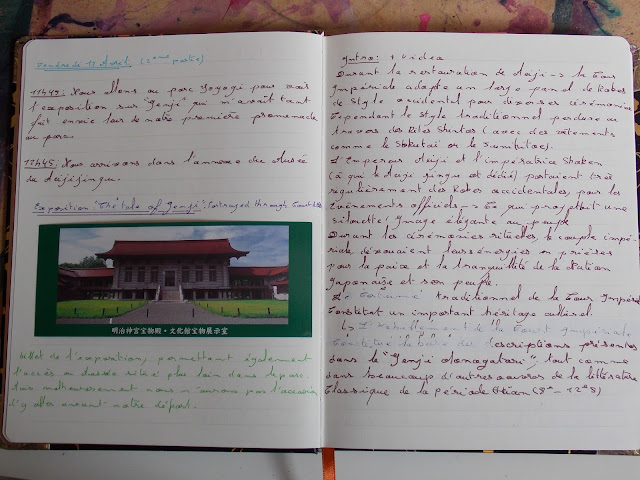 Vendredi 11 Avril. (2ème partie)
11h45: Nous allons au parc Yoyogi pour voir
l'exposition sur "Genji" qui m'avait tant
fait envie lors de notre première promenade
au parc.
12h45: Nous arrivons dans l'annexe du Musée
du Meiji jingu.
Exposition: "The tale of Genji", Portrayed through
明治神宮宝物殿・文化館宝物展示室
Billet de l'exposition, permettant également
l'accès au musée situé plus loin dans le parc.
Mais malheureusement nous n'aurons pas l'occasion
d'y aller avant notre départ.
Intro: + Video
Durant la restauration de Meiji -> la Cour
Impériale adopte un large panel de Robes
de style occidental pour diverses cérémonies
Cependant le style traditionnel perdure au
travers des Rites Shintos (avec des vêtements
comme le Sokutai or le
L'Empereur Meiji et l'impératrice Shoken
(à qui le Meiji jingu est dédié) portaient très
régulièrement des Robes occidentales, pour les
Évènements officiels -> Ce qui projettait une
silouette/image élégante au peuple
Durant les cérémonies rituelles, le couple impé-
riale, dévouaient leurs énergies en prières
pour la paix et la tranquillité de la Nation
Japonaise et son peuple.
Le Costume traditionnel de la Cour Impériale
Constitut un important héritage culturel
L'
constitue la base des descriptions présentes
dans le "Genji Monogatari", tout comme
dans beaucoup d'autres œuvres de la littérature
Classique de la période Heian (8e - 12e s)